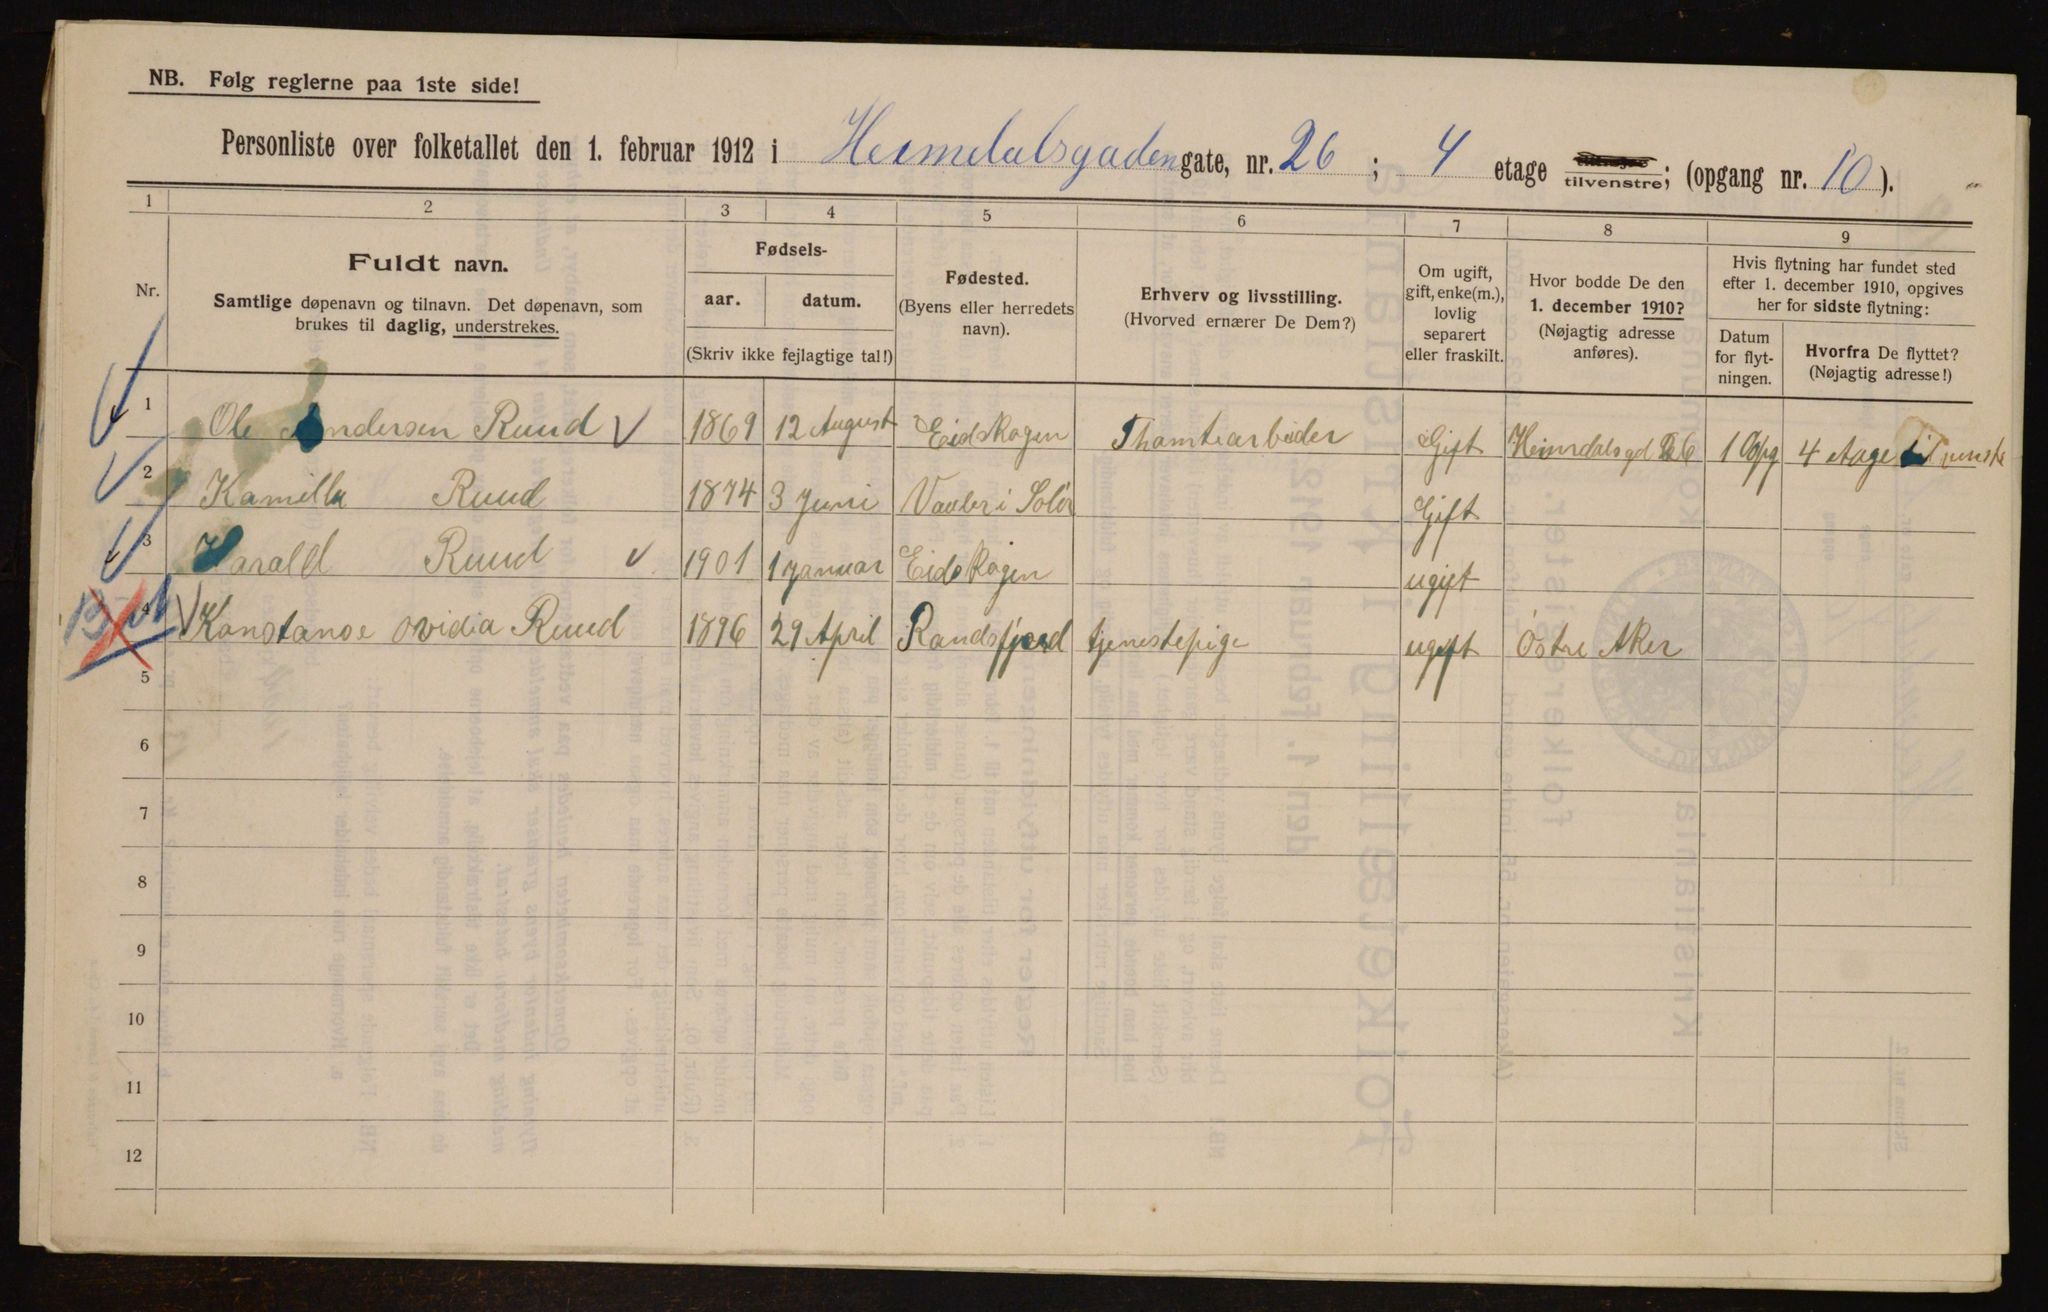 NB. Følg reglerne paa 1ste side!
Personliste over folketallet den 1. februar 1912 i Heimdalsgaden gate, nr. 26 ; 4 etage tilvenstre; (opgang nr. 10 ).
1 2 3 4 5 6 7 8 9
Nr.
Fuldt navn.
Samtlige døpenavn og tilnavn. Det døpenavn, som
brukes til daglig, understrekes.
Fødsels-
aar. datum.
(Skriv ikke fejlagtige tal!)
Fødested.
(Byens eller herredets
navn).
Erhverv og livsstilling.
(Hvorved ernærer De Dem?)
Om ugift,
gift, enke(m.),
lovlig
separert
eller fraskilt.
Hvor bodde De den
1. december 1910?
(Nøjagtig adresse
anføres).
Hvis flytning har fundet sted
efter 1. december 1910, opgives
her for sidste flytning:
Datum
for flyt-
ningen.
Hvorfra De flyttet?
(Nøjagtig adresse!)
1 Ole Andersen Ruud 1869 12 August Eidskogen Gift Heimdalsgd 26 1 Opg 4 etage
2 Kamilla Ruud 1874 3 Juni Vaaler i Solør Gift
3 Harald Ruud 1901 1 Januar Eidskogen ugift
4 Konstanse Ovidia Ruud 1896 29 April Randsfjord tjenestepige ugift Østre Aker
5
6
7
8
9
10
11
12